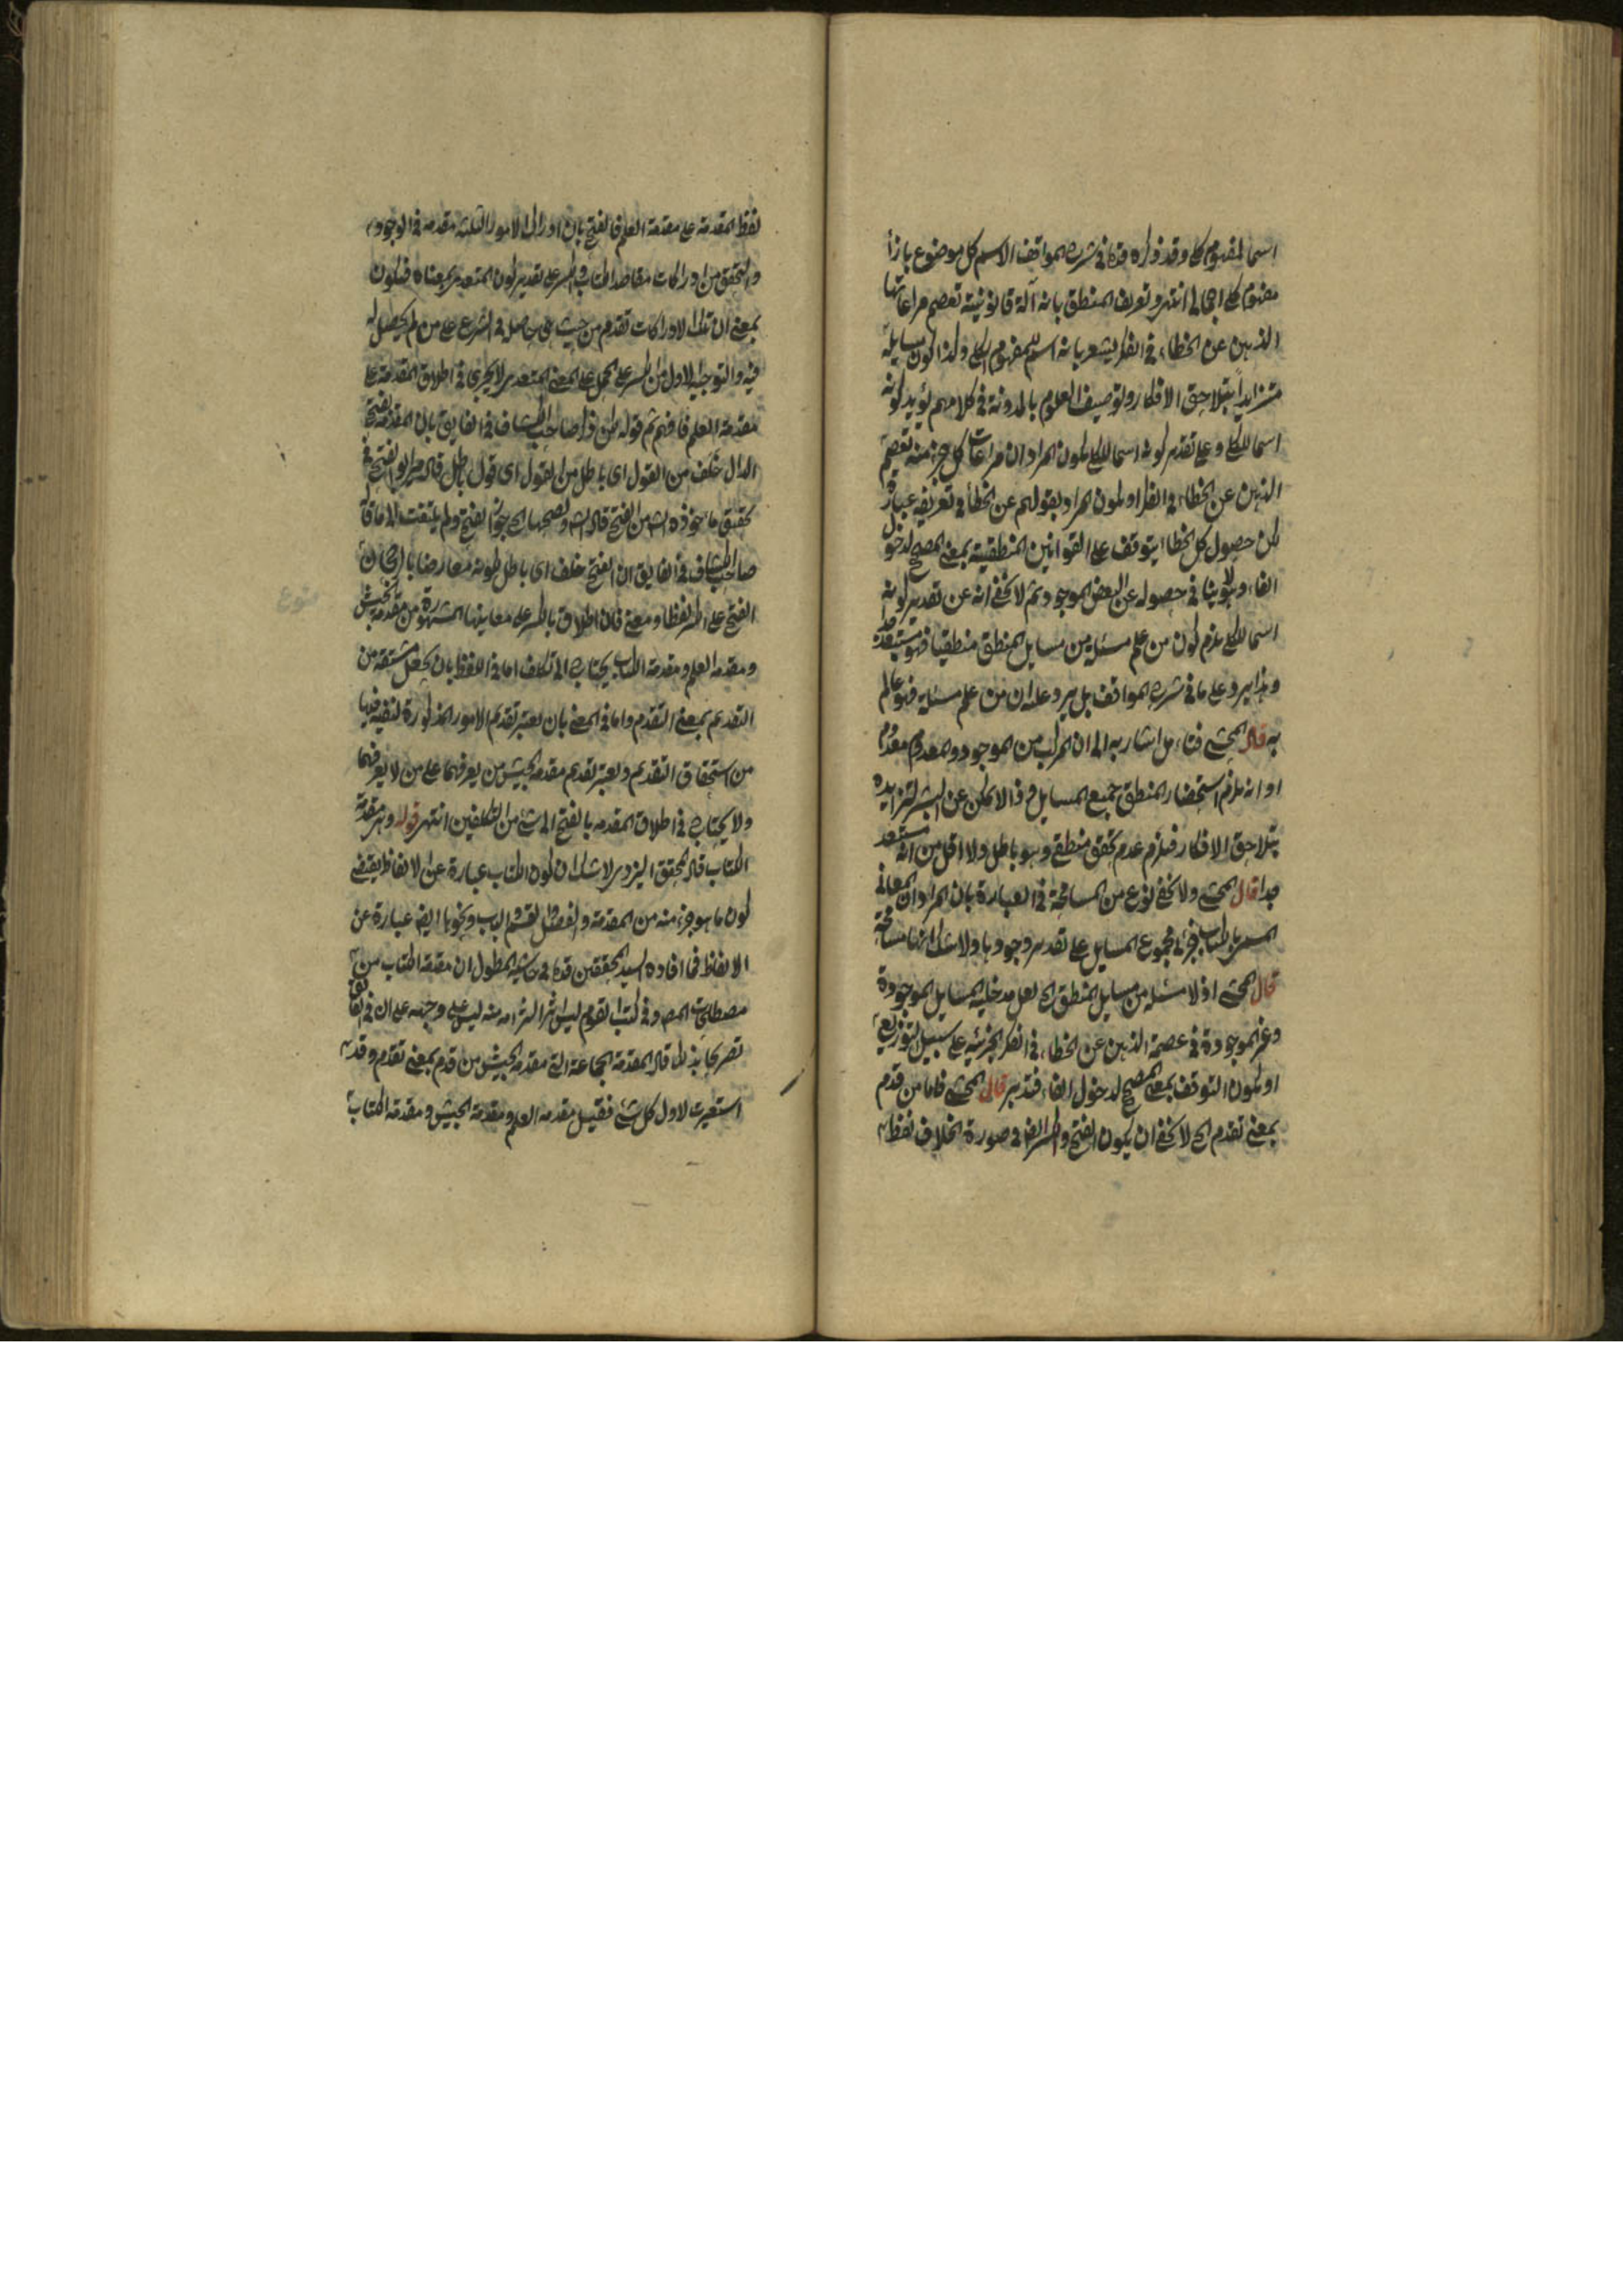 اسما لمفهوم كلى وقد ذكره قده فى شرح المواقف الاسم كل موضوع بازاء
مفهوم كلى اجمالى انتهى وتعريف المنطق بانه آلة قانونية تعصم مراعاتها
الذهن عن الخطاء فى الفكر يشعر بانه اسم للمفهوم الكلى وكذا كون مسايله
متزايداً بتلاحق الافكار وتوصيف العلوم بالمدونة فى كلامهم يؤيد كونه
اسما للكلى وعلى تقدير كونه اسما للكل يكون المراد ان مراعات كل جزء منه تعصم
الذهن عن الخطاء فى الفكر او يكون المراد بقولهم عن الخطأ فى تعريفه عبارة
لكن حصول كل الخطا يتوقف على القوانين المنطقية بمعنى المصحح لدخول
الفاء وهو لا ينافى حصوله عن البعض الموجود ثم لا يخفى انه عن تقدير كونه
اسما للكلى يلزم كون من علم مسئلة من مسايل المنطق منطقيا فهو مستبعد
وهذا يرد على ما فى شرح المواقف بل يرد عليه ان من علم مسئلة فهو عالم
به قال المحشى فتامل اشار به الى ان المركب من الموجود والمعدوم معدوم
او انه يلزم استحضار المنطق جميع المسايل وذا لا يمكن عن البشر لتزايده
بتلاحق الافكار فيلزم عدم تحقق منطقى وهو باطل ولا اقل من انه مستبعد
جدا قال المحشى ولا يخفى نوع من المسامحة فى العبارة بان المراد ان المعانى
المسمى بالكتاب جزئى مجموع المسايل على تقدير وجودها ولا شك انها مسامحة
قال المحشى اذ لا مسئلة من مسايل المنطق الخ لعل مدخلية المسايل الموجودة
وغير الموجودة فى عصمة الذهن عن الخطاء فى الفكر الجزئية على سبيل التوزيع
او يكون التوقف بمعنى المصحح لدخول الفاء فتدبر قال المحشى فاما من قدم
بمعنى تقدم الخ لا يخفى ان يكون الفتح والكسر ايضا فى صورة اطلاق لفظ
لفظ المقدمة على مقدمة العلم فالفتح بان ادراك الامور الثلثة مقدمة فى الوجود
والتحقق من ادراكات مقاصد الكتاب والكسر على تقدير كون المتعدى بمعناه فيكون
بمعنى ان تلك الادراكات تقدم من حيث هى حاصلة فى الشرع على من لم يحصل له
فيه والتوجيه الاول من الكسر على الحمل على المعنى المتعدى لا يجرى فى اطلاق المقدمة على
مقدمة العلم فافهم ثم قوله لكن ذكر صاحب الكشاف فى الفايق بان المقدمة بفتح
الدال خلف من القول اى باطل من القول اى قول باطل قال مير ابو الفتح فى
تحقيق ماخوذه الشق من الفتح قال الش وتصحيحها الخ جواز الفتح ولم يلتفت الى ما قال
صاحب الكشاف فى الفايق ان الفتح خلف اى باطل لكونه معارضا بارجحان
الفتح على الكسر لفظا ومعنى فان اطلاق بالكسر على معانيها المشهورة من مقدمة الجيش
ومقدمة العلم ومقدمة الكتاب يحتاج الى تكلف اما فى اللفظ بان يجعل مشتقة من
التقديم بمعنى التقدم واما فى المعنى بان يعتبر تقديم الامور المذكورة لنفسه فيها
من استحقاق التقديم ويعتبر تقديم مقدمة الجيش من يعرفهما على من لا يعرفهما
ولا يحتاج فى اطلاق المقدمة بالفتح الى شئ من التكلفين انتهى قوله وهى مقدمة
الكتاب قال المحقق اليزدى لا شك ان كون الكتاب عبارة عن الالفاظ يقتضى
كون ما هو جزء منه من المقدمة والفصل والقسم والباب ونحوها ايضا عبارة عن
الالفاظ فما افاده السيد المحققين قده فى حاشية المطول ان مقدمة الكتاب من
مصطلحات المص وفى كتب القوم ليس اثر التزامه منه ليس على وجهه على ان فى الفايق
تصريحا بذلك قال المقدمة الجماعة التى مقدمة الجيش من قدم بمعنى تقدم وقد
استعيرت لاول كل شئ فقيل مقدمة العلم ومقدمة الجيش ومقدمة الكتاب